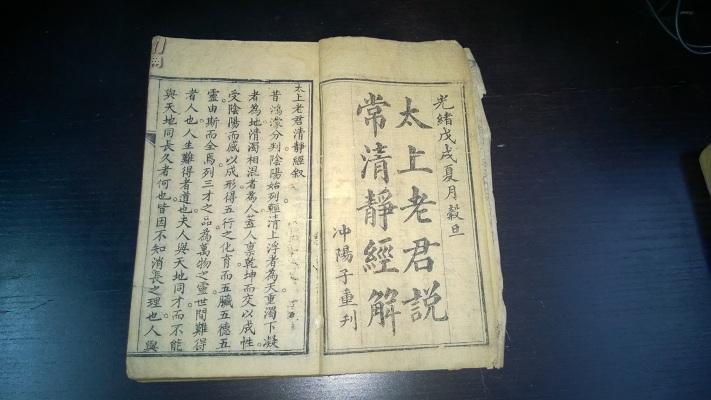 光緒戊戌夏月穀旦
太上老君說
常清靜經解
冲陽子重刊
太上老君清靜經叙
昔鴻濛分判陰陽始列輕清上浮者為天重濁下凝
者為地清濁相混者為人蓋人禀乾坤而交以成性
受陰陽而感以成形得五行之化育而五臟五德五
靈由斯而全焉列三才之品為萬物之靈世間難得
者人也人生難得者道也夫人與天地同才而不能
與天地同長久者何也皆因不知消長之理也人與